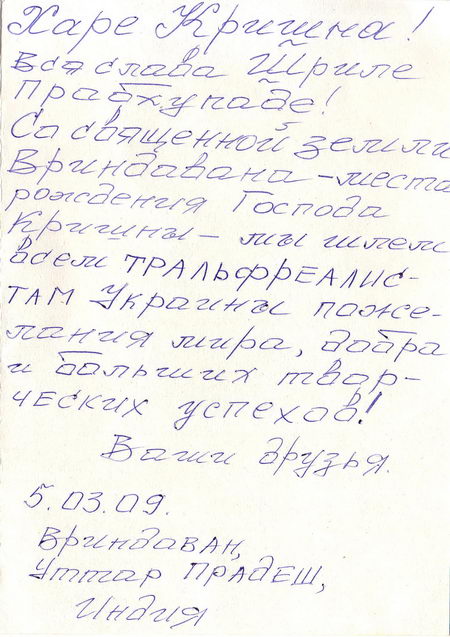 Харе Кришна!
Вся слава Шриле
Прабхупаде!
Со священной земли
Вриндавана - места
рождения Господа
Кришны - мы шлем
всем ТРАЛЬФРЕАЛИС-
ТАМ Украины поже-
лания мира, добра
и больших твор-
ческих успехов!
Ваши друзья.
5.03.09.
Вриндаван,
Уттар Прадеш,
Индия